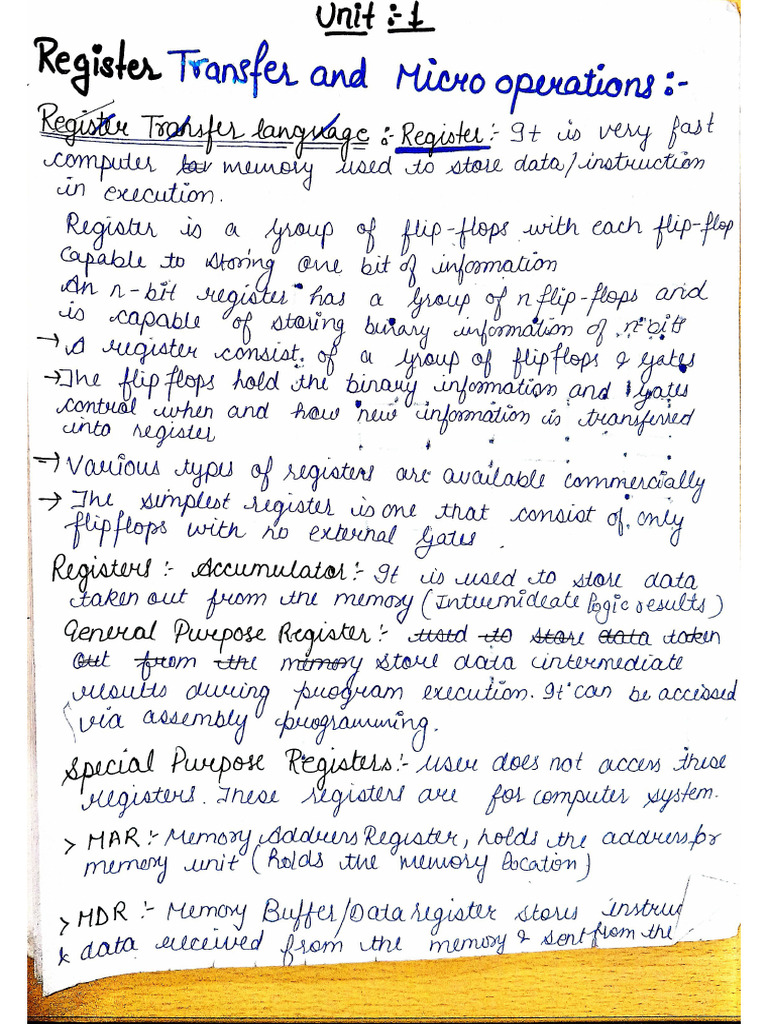 Unit :- 1
Register Transfer and Micro operations :-
Register Transfer language :- Register :- It is very fast
computer memory used to store data/instruction
in execution.
Register is a group of flip-flops with each flip-flop
capable to storing one bit of information
An n-bit register has a group of n flip-flops and
is capable of storing binary information of n-bit
→ A register consist of a group of flipflops & gates
→ The flip flops hold the binary information and gates
control when and how new information is transferred
into register
→ Various types of registers are available commercially
→ The simplest register is one that consist of only
flipflops with no external gates.
Registers :- Accumulator :- It is used to store data
taken out from the memory (Intermideate logic results)
General Purpose Register :- used to store data taken
out from the memory store data intermediate
results during program execution. It can be accessed
via assembly programming.
Special Purpose Registers :- user does not access these
registers. These registers are for computer system.
> MAR :- Memory Address Register, holds the address for
memory unit (holds the memory location)
> MDR :- Memory Buffer/Data register stores instruc
& data received from the memory & sent from the